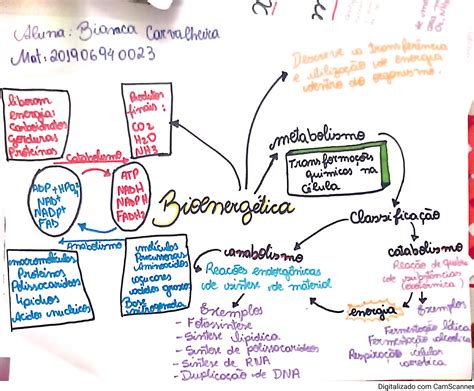 Aluna: Bianca Carvalheira
Mat: 201906940023
Descreve a transferência
e utilização de energia
dentro do organismo.
liberam
energia:
Carboidratos
Gorduras
Proteínas
Produtos
finais:
CO2
H2O
NH3
Catabolismo
ADP + HPO4
NAD+
NADP+
FAD
ATP
NADH
NADPH
FADH2
Anabolismo
macromoléculas
Proteínas
Polissacarídeos
Lipídios
Ácidos nucleicos
moléculas
Precursoras
Aminoácidos
açúcares
ácidos graxos
Base
nitrogenada
Bioenergética
metabolismo
Transformações
químicas na
célula
Classificação
anabolismo
Reações endergônicas
de síntese de material
Exemplos
- Fotossíntese
- Síntese lipídica
- Síntese de polissacarídeos
- Síntese de RNA
- Duplicação de DNA
catabolismo
Reação de quebra
de substâncias
(exotérmica)
energia
Exemplos
Fermentação lática
Fermentação alcoólica
Respiração celular
aeróbica
Digitalizado com CamScanner